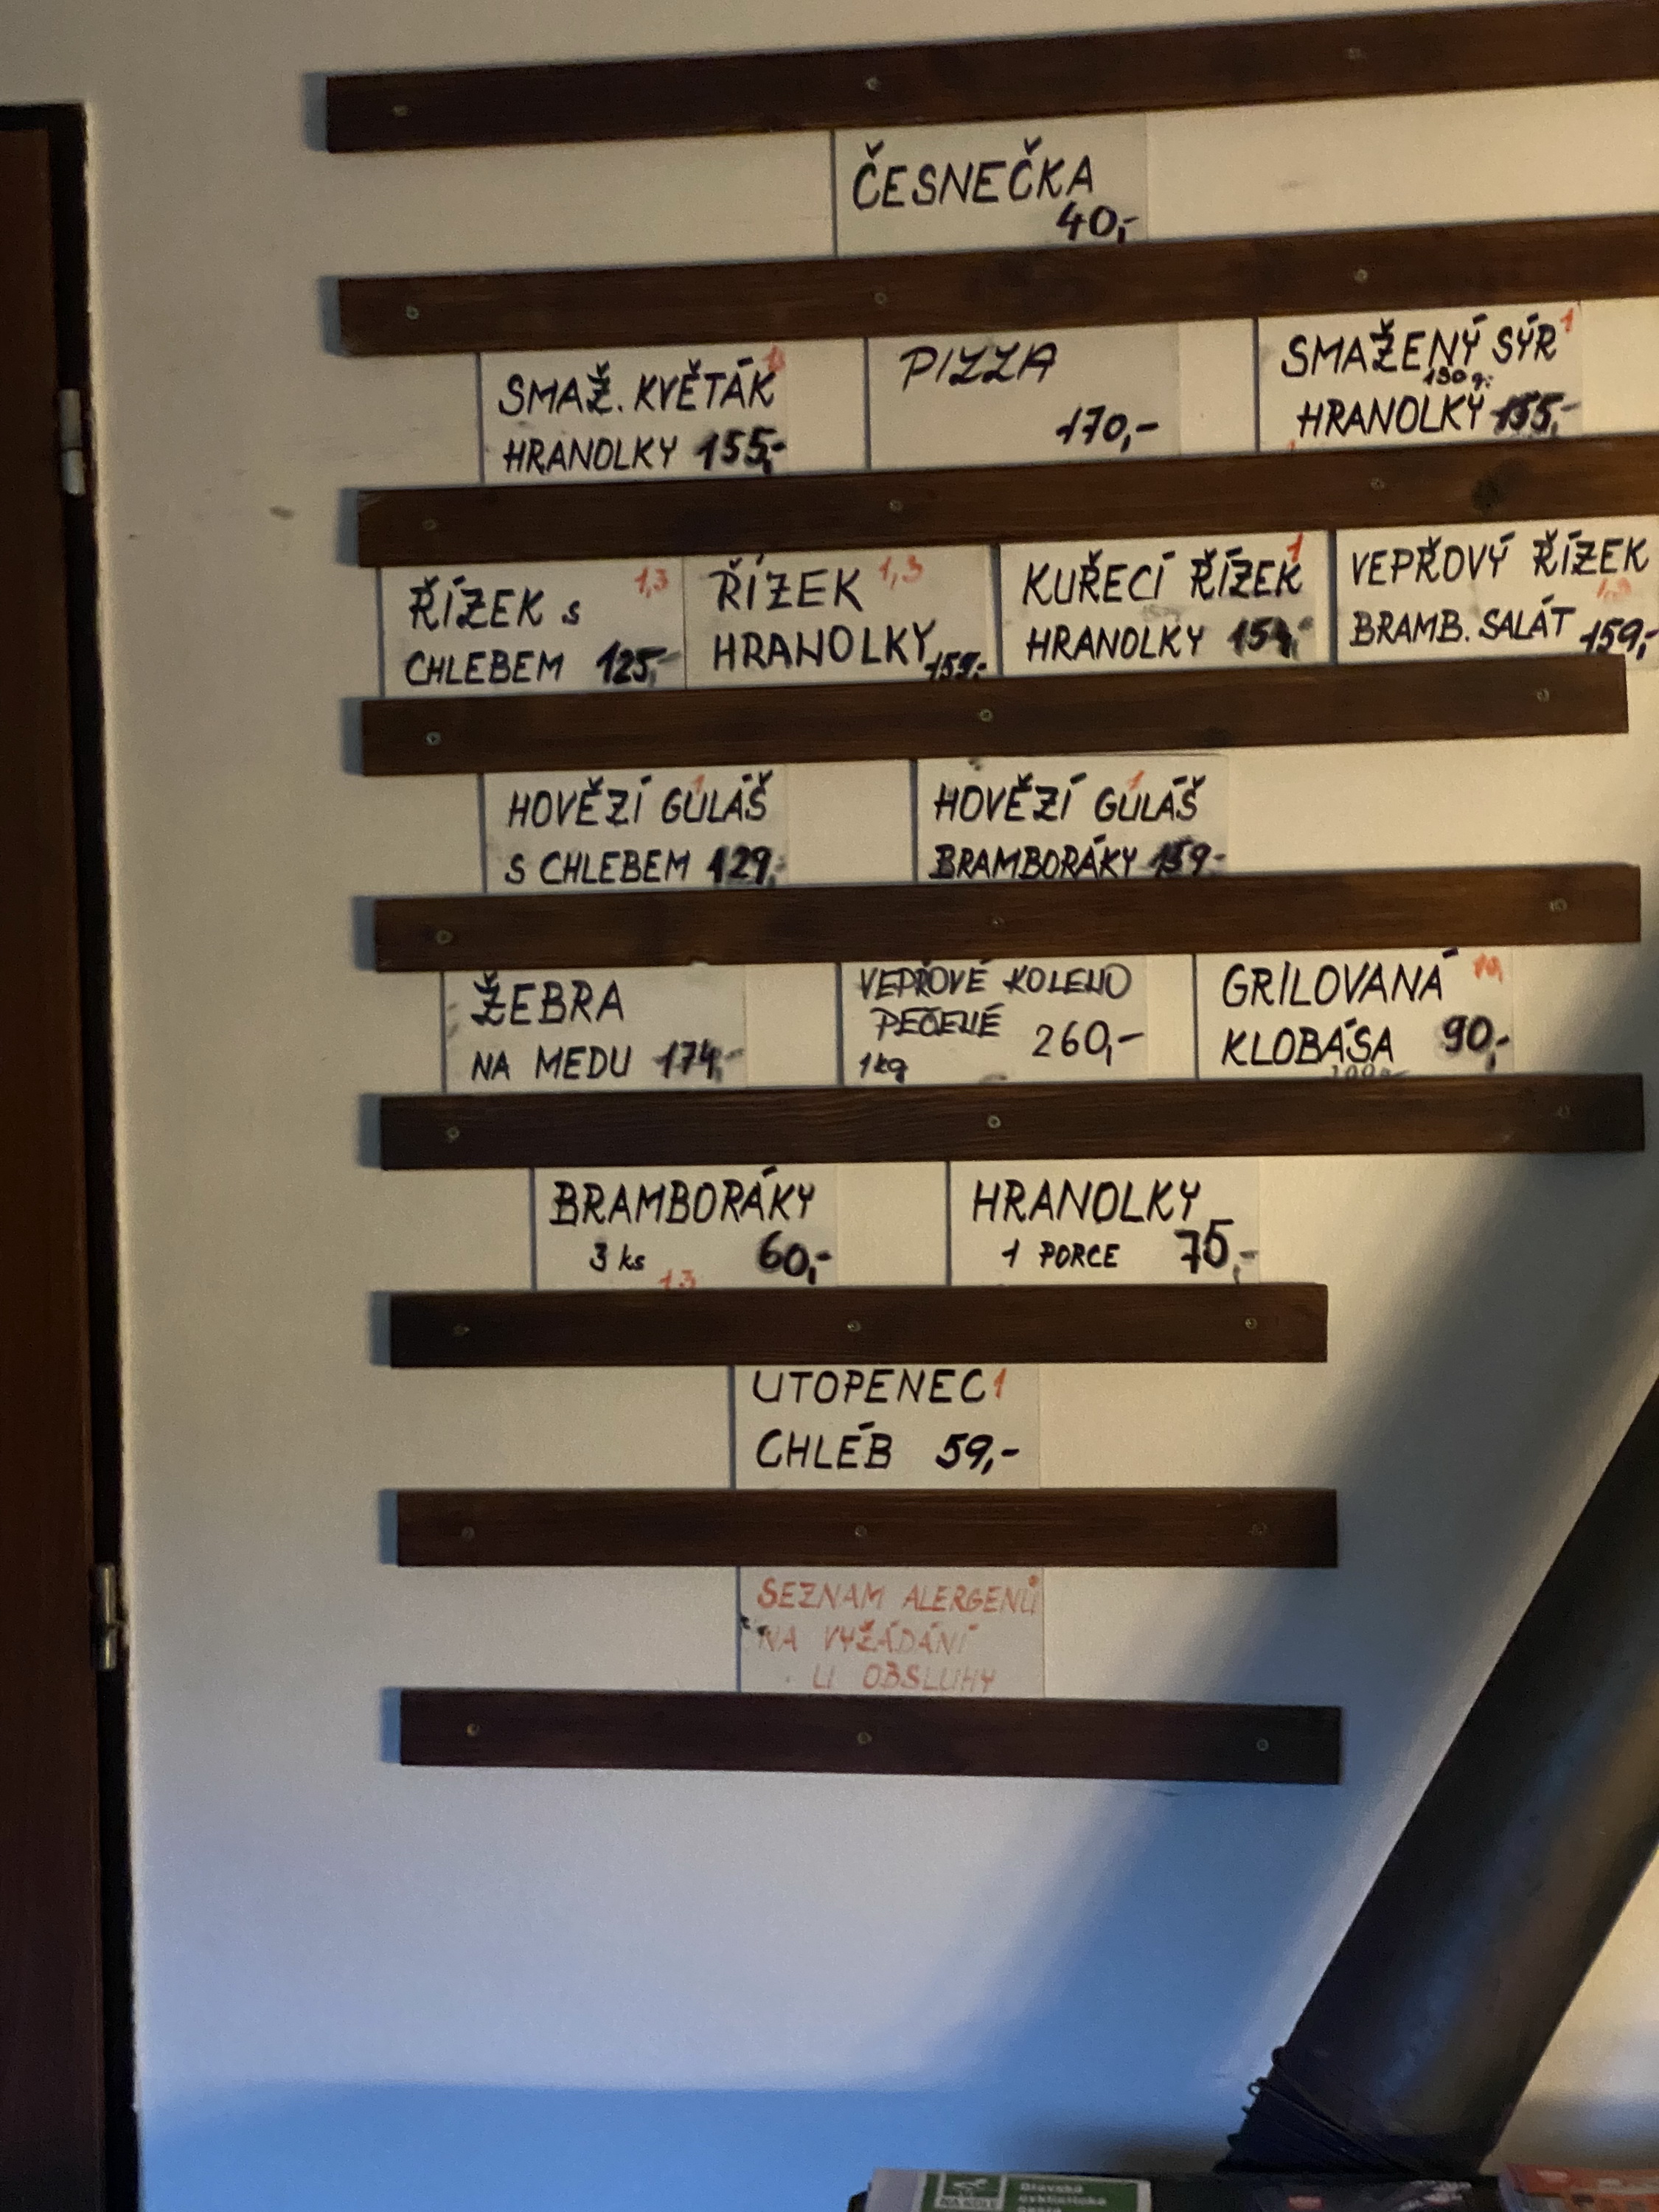 ČESNEČKA
40,-
SMAŽ. KVĚTÁK
HRANOLKY 155,-
PIZZA
170,-
SMAŽENÝ SÝR 1
130g.
HRANOLKY 155,-
ŘÍZEK s 1,3
CHLEBEM 125,-
ŘÍZEK 1,3
HRANOLKY 159,-
KUŘECÍ ŘÍZEK 1
HRANOLKY 154,-
VEPŘOVÝ ŘÍZEK
BRAMB. SALÁT 159,-
HOVĚZÍ GULÁŠ 1
S CHLEBEM 129,-
HOVĚZÍ GULÁŠ 1
BRAMBORÁKY 159,-
ŽEBRA
NA MEDU 174,-
VEPŘOVÉ KOLENO
PEČENÉ 260,-
1kg
GRILOVANÁ
KLOBÁSA 90,-
BRAMBORÁKY
3 ks 60,-
1,3
HRANOLKY
1 PORCE 75,-
UTOPENEC 1
CHLÉB 59,-
SEZNAM ALERGENŮ
NA VYŽÁDÁNÍ
U OBSLUHY
NA KOLE